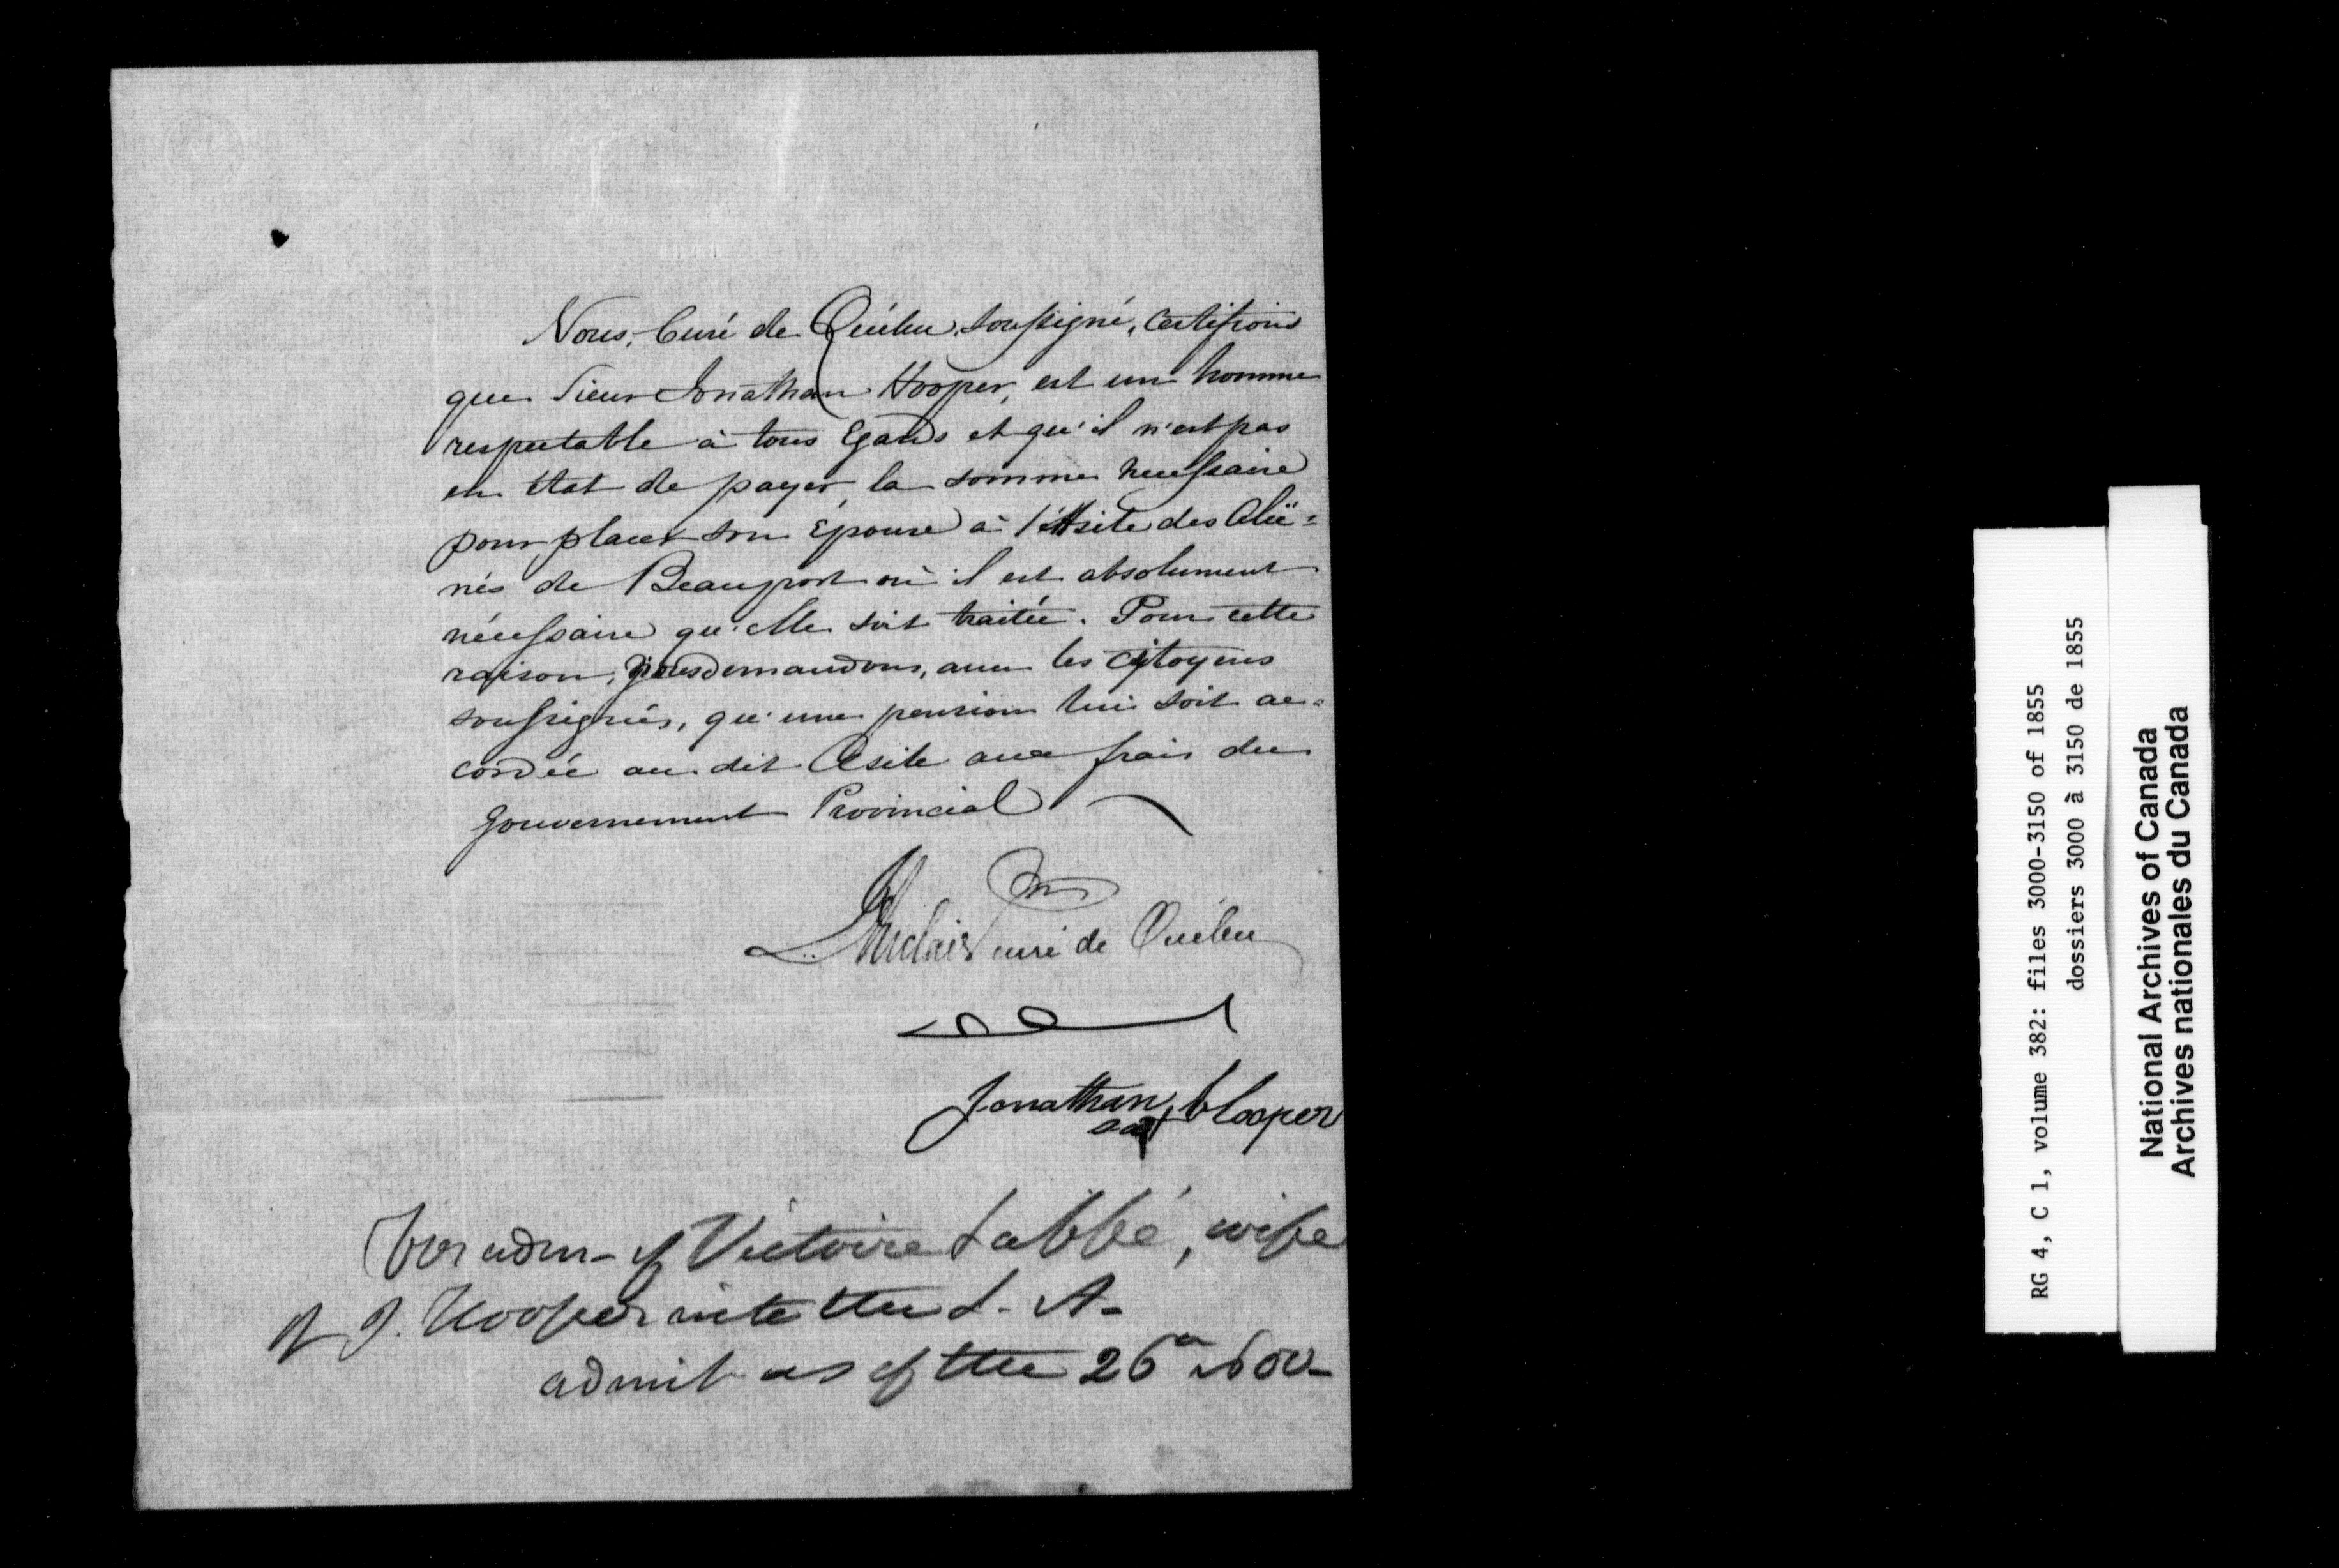 Nous, Curé de Québec, soussigné, certifions
que Sieur Jonathan Hooper, est un homme
respectable à tous Egards et qu'il n'est pas
en état de payer, la somme necessaire
pour placer son Épouse à l'Asile des Alié=
nés de Beauport où il est absolument
nécessaire qu'elle soit traitée. Pour cette
raison, Nous demandons, avec les citoyens
soussignés, qu'une pension lui soit ac=
cordée au dit Asile aux frais du
Gouvernement Provincial
curé de Québec
Jonathan Hooper
For adm- of Victoire Labbé, wife
of J. Hooper into the L. A-
admit as of the 26th Nov-
RG 4, C 1, volume 382: files 3000-3150 of 1855
dossiers 3000 à 3150 de 1855
National Archives of Canada
Archives nationales du Canada